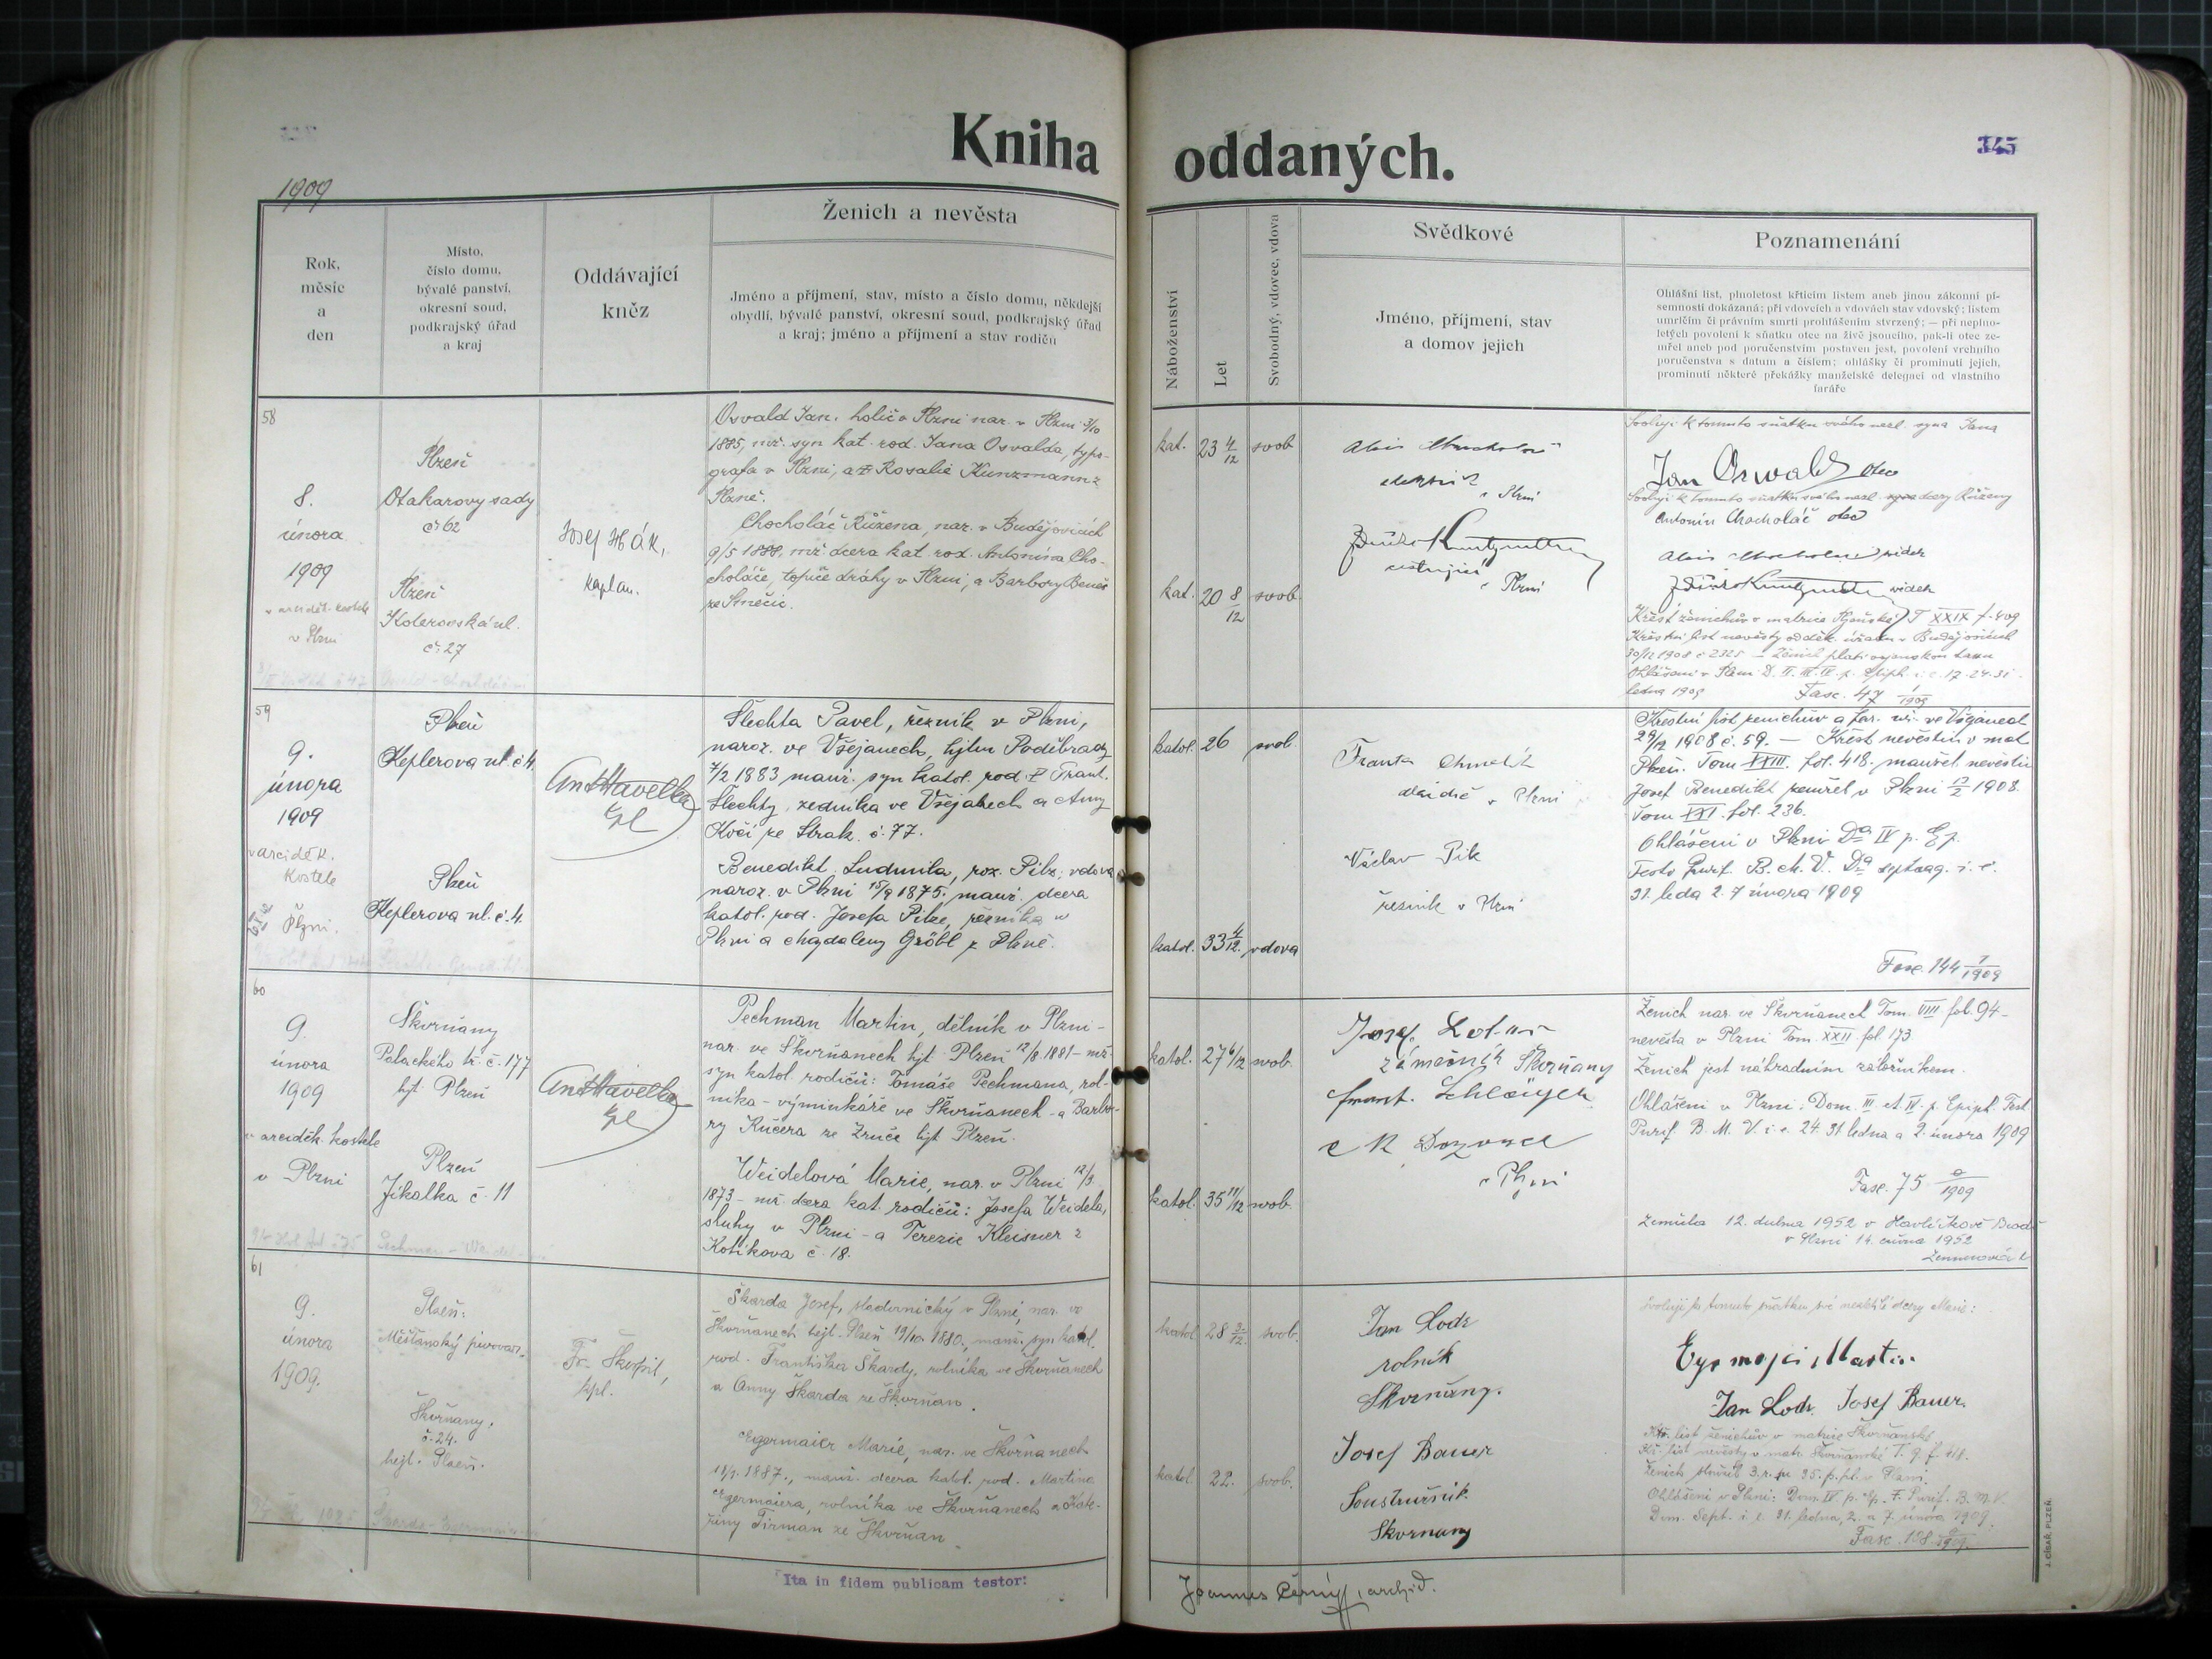 Kniha oddaných.
345
1909
Rok,
měsíc
a
den
Místo,
číslo domu,
bývalé panství,
okresní soud,
podkrajský úřad
a kraj
Oddávající
kněz
Ženich a nevěsta
Jméno a příjmení, stav, místo a číslo domu, někdejší
obydlí, bývalé panství, okresní soud, podkrajský úřad
a kraj; jméno a příjmení a stav rodičů
Náboženství
Let
Svobodný, vdovec, vdova
Svědkové
Jméno, příjmení, stav
a domov jejich
Poznamenání
Ohlášní list, plnoletost křticím listem aneb jinou zákonní pí-
semností dokázaná; při vdovcích a vdovách stav vdovský; listem
umrlčím či právním smrti prohlášením stvrzený; — při neplno-
letých povolení k sňatku otce na živě jsoucího, pak-li otec ze-
mřel aneb pod poručenstvím postaven jest, povolení vrchního
poručenstva s datum a číslem; ohlášky či prominutí jejich,
prominutí některé překážky manželské delegaci od vlastního
faráře
58
8.
února
1909
v arciděk. kostele
v Plzni
Plzeň
Otakarovy sady
č 62
Plzeň
Kolerovská ul.
č. 27
Josef Hák,
kaplan.
Osvald Jan, holič v Plzni nar. v Plzni 3/10
1885, mž. syn kat. rod. Jana Osvalda, typo-
grafa v Plzni, a Rosalie Kunzmann z
Plzně.
Chocholáč Růžena, nar. v Budějovicích
9/5 1888, mž. dcera kat. rod. Antonína Cho-
choláče, topiče dráhy v Plzni, a Barbory Beneš
ze Strečic.
kat. 23 4/12 svob
kat. 20 8/12 svob.
v Plzni
v Plzni
Svoluji k tomuto sňatku svého nezl. syna Jana
Jan Oswald otec
Svoluji k tomuto sňatku svého nezl. dcery Růženy
Antonín Chocholáč otec
svědek
svědek
Křest ženichův v matrice Plzeňské T XXIX f. 409
Křestní list nevěsty od děk. úřadu v Budějovicích
30/12 1908 č 2325 — Ženich platí vojenskou taxu
Ohlášeni v Plzni D. II. III. IV. p. Epiph. i. e. 17. 24. 31.
ledna 1909
Fasc. 47 1/1909
59
9.
února
1909
v arciděk.
kostele
v Plzni.
Plzeň
Keplerova ul. č 4.
Plzeň
Keplerova ul. č. 4.
Ant Havelka
kpl
Šlechta Pavel, řezník v Plzni,
naroz. ve Všejanech, hjtm Poděbrady
7/2 1883 manž. syn katol. rod. Frant.
Šlechty, zedníka ve Všejanech a Anny
Kočí ze Strak. č. 77.
Benedikt Ludmila, roz. Pilz, vdova
naroz. v Plzni 15/9 1875, manž. dcera
katol. rod. Josefa Pilze, řezníka v
Plzni a Magdaleny Gröbl z Plzně.
katol. 26 svob.
katol. 33 4/12. vdova
Franta Chmelík
v Plzni
Václav Pik
řezník v Plzni
Křestní list ženichův z far. úř. ve Všejanech
29/12 1908 č. 59. — Křest nevěstin v mat
Plzeň. Tom XXIII. fol. 418. manžel nevěstin
Josef Benedikt zemřel v Plzni 13/2 1908.
Tom XXI. fol. 236.
Ohlášeni v Plzni Dca IV p. Ep.
Festo Purif. B. M. V. Dca septuag. i. e.
31. leda 2. 7 února 1909
Fasc. 144 7/1909
60
9.
února
1909
v arciděk. kostele
v Plzni
Škvrňany
Palackého tř. č. 177
hjt. Plzeň
Plzeň
Jikalka č. 11
Ant Havelka
kpl
Pechman Martin, dělník v Plzni -
nar. ve Škvrňanech hjt. Plzeň 12/8. 1881 - mž.
syn katol. rodičů: Tomáše Pechmana, rol-
níka - výminkáře ve Škvrňanech - a Barbo-
ry Kučera ze Zruče hjt Plzeň.
Weidelová Marie, nar. v Plzni 12/3.
1873 - mž. dcera kat. rodičů: Josefa Weidela,
sluhy v Plzni - a Terezie Kleisner z
Kotíkova č. 18.
katol. 27 6/12 svob.
katol. 35 11/12 svob.
Josef
zámečník Škvrňany
v Plzni
Ženich nar. ve Škvrňanech Tom. VIII fol. 94 -
nevěsta v Plzni Tom. XXII. fol. 173
Ženich jest náhradním záložníkem.
Ohlášeni v Plzni: Dom. III et. IV. p. Epiph. Fest.
Purif. B. M. V. i. e. 24. 31. ledna a 2. února 1909
Fasc. 75 /1909
Zemřela 12. dubna 1952 v Havlíčkově Brodě
v Plzni 14. června 1952
61
9.
února
1909.
Plzeň:
Měšťanský pivovar.
Škvrňany.
č. 24.
hejt. Plzeň.
Fr. Škopil,
kpl.
Škarda Josef, sladovnický v Plzni, nar. ve
Škvrňanech hejt. Plzeň 19/10. 1880., manž. syn katol.
rod. Františka Škardy, rolníka ve Škvrňanech
a Anny Škarda ze Škvrňan.
Egermaier Marie, nar. ve Škvrňanech
1887., manž. dcera katol. rod. Martina
Egermaiera, rolníka ve Škvrňanech a Kate-
řiny Tirman ze Škvrňan.
katol. 28 3/12. svob.
katol. 22. svob.
Jan Lodr
rolník
Škvrňany.
Josef Bauer
Soustružník.
Skvrnany
Svoluji k tomuto sňatku své nezletilé dcery Marie:
Martin.
Jan Lodr. Josef Bauer.
Kř. list ženichův v matrice Škvrňanské
Kř. list nevěsty v matr. Škvrňanské T. 9. f.
Ženich sloužil 3. r. u 35. p. pl. v Plzni.
Ohlášeni v Plzni: Dom. IV p. Ep. F. Purif. B. M. V.
Dom. Sept. i. e. 31. ledna, 2. a 7. února 1909.
Fasc. 108
Ita in fidem publicam testor:
Joannes Černý, archid.
J. CÍSAŘ, PLZEŇ.